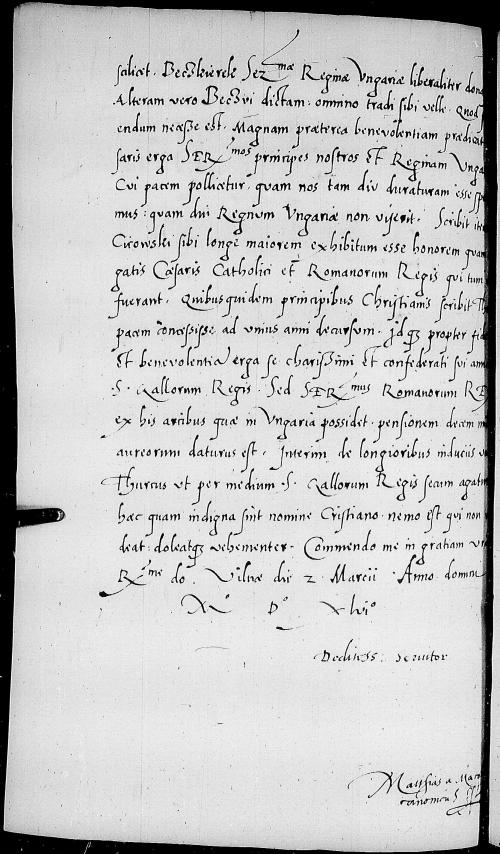 scilicet. Beczkierek Sermae Reginae Vngariae liberaliter dona
Alteram vero Beczvi dictam omnino tradi sibi velle. Quod
endum necesse est. Magnam praeterea benevolentiam praedicat
saris erga SERmos principes nostros et Reginam Vnga
Cui pacem pollicetur, quam nos tam diu duraturam esse spe
mus, quam diu Regnum Vngariae non viserit. Scribit ite
Cicowski sibi longe maiorem exhibitum esse honorem quam
gatis Caesaris Catholici et Romanorum Regis qui tum
fuerant. Quibusquidem principibus Christianis scribit Th
pacem concessisse ad unius anni decursum. Idq3 propter fid
et benevolentia erga se charissimi et confederati sui ami
S. Gallorum Regis. Sed SERmus Romanorum RE
ex his arcibus quae in Vngaria possidet pensionem decem m
aureorum daturus est. Interim de longioribus induciis v
Thurcus ut per medium S. Gallorum Regis secum agatu
haec quam indigna sint nomine Cristiano nemo est qui non
deat doleatq3 vehementer. Commendo me in gratiam v
Rme do. Vilnae die 2 Marcii Anno domini
Mo Do xlvio
Deditiss: servitor
Matthias a
canonicus